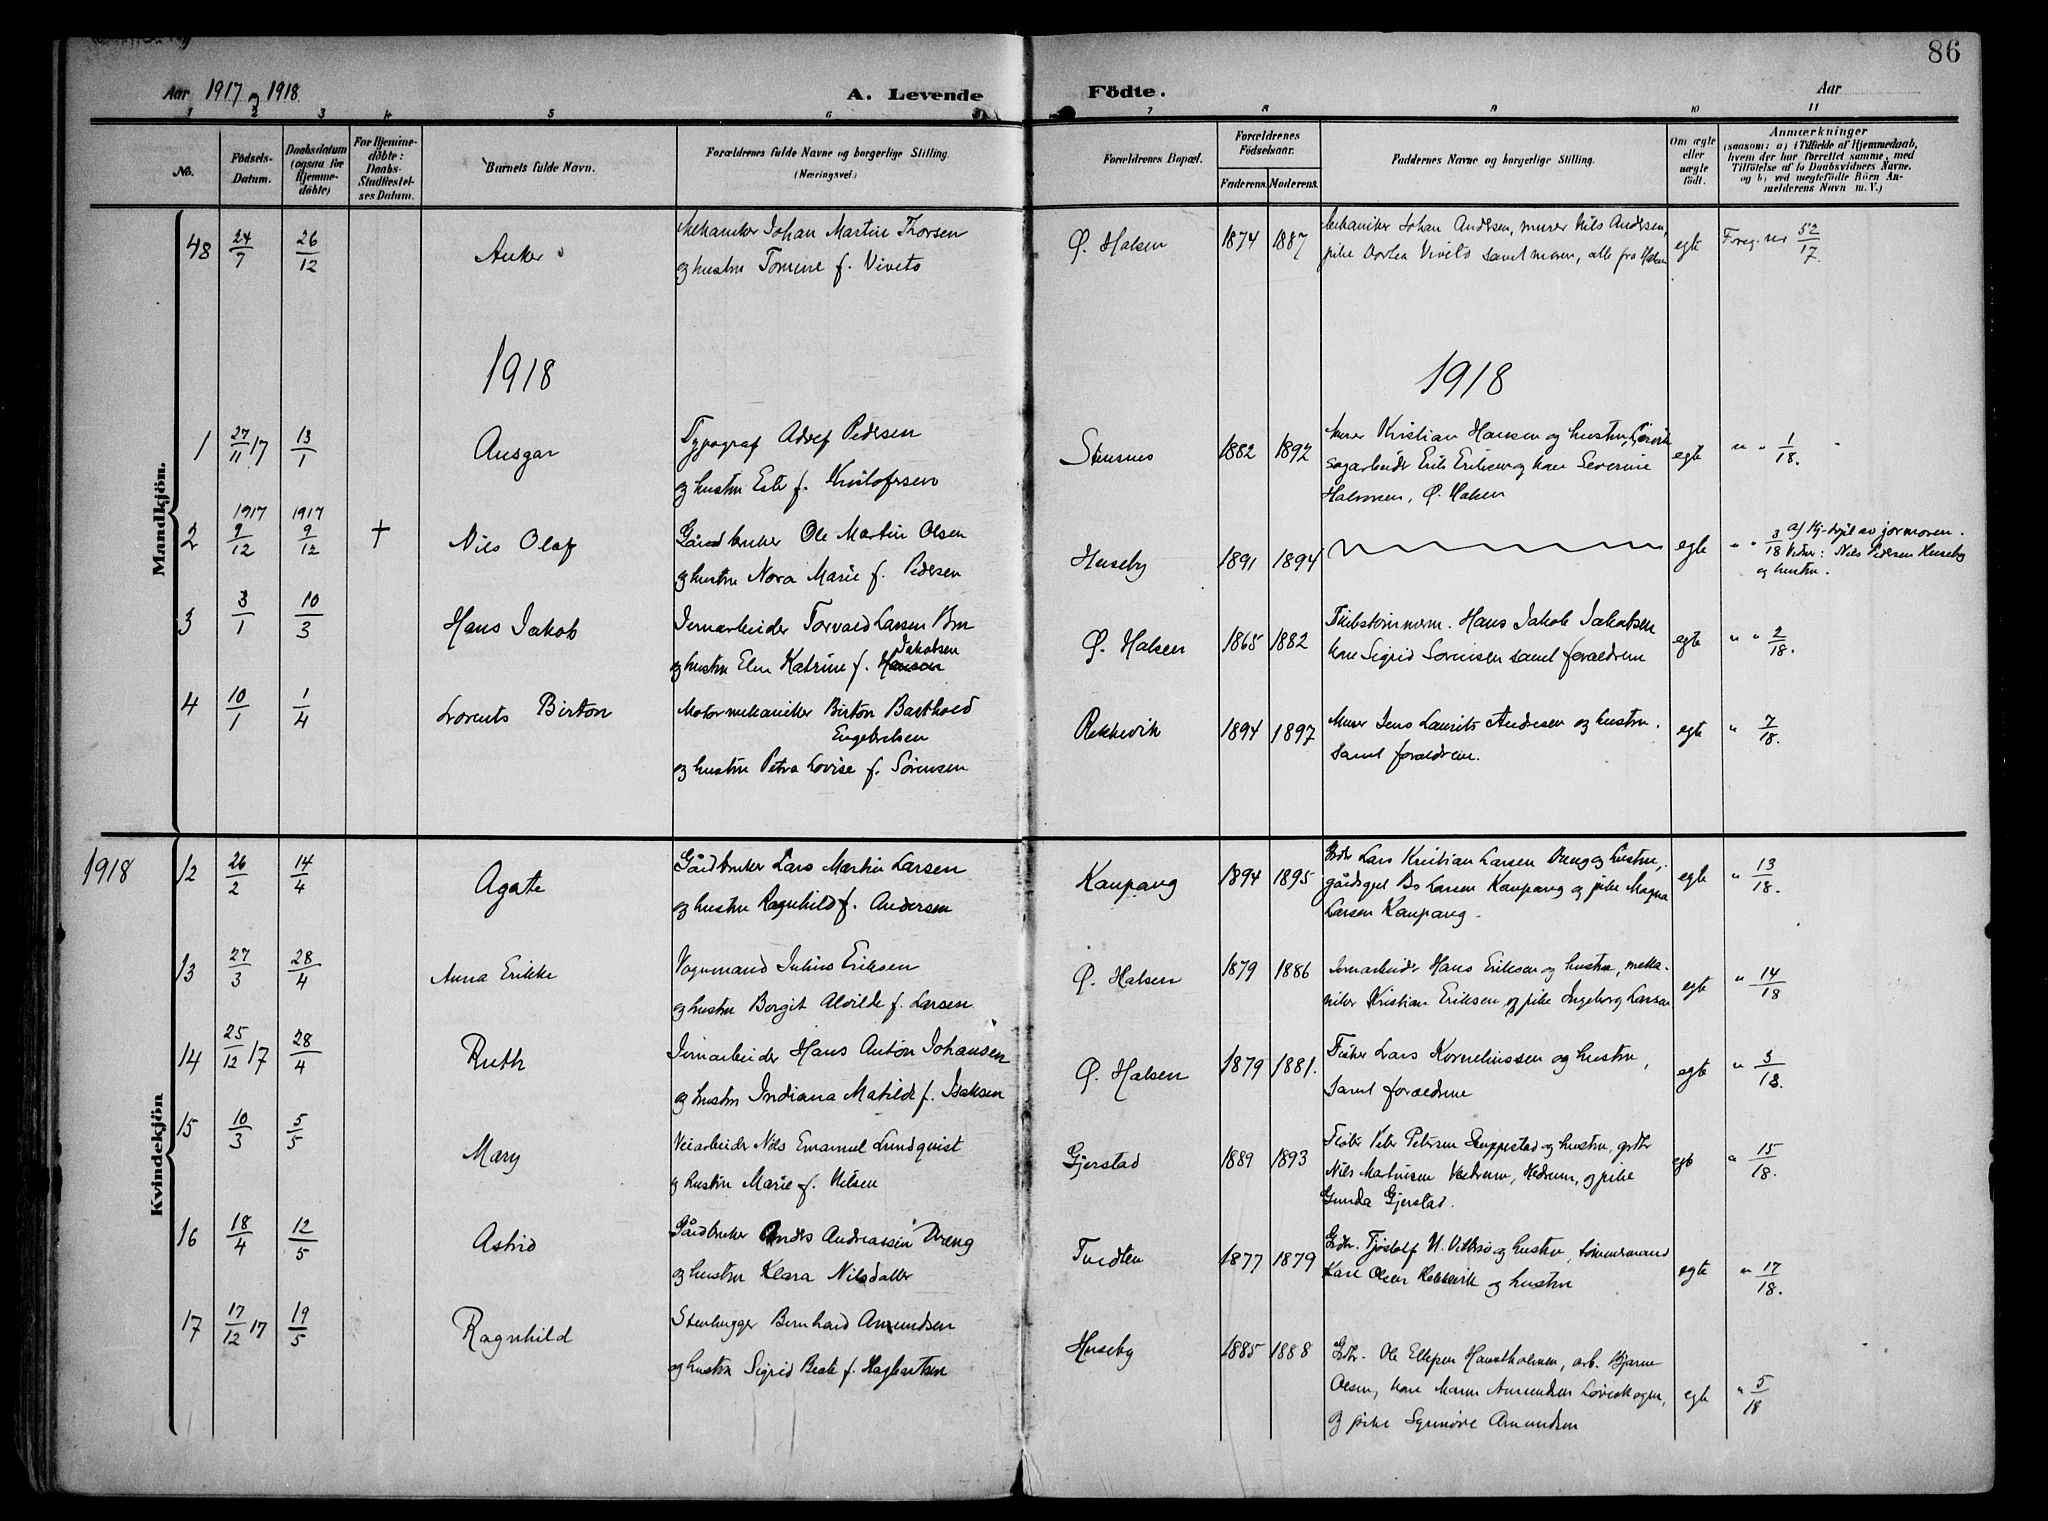 86
Aar 1917 og 1918.
A. Levende
Födte.
Aar
1 2 3 4 5 6 7 8 9 10 11
No.
Födsels-Datum.
Daabsdatum (ogsaa for Hjemmedöbte)
For Hjemmedöbte: Daabs-Stadfæstelses Datum.
Barnets fulde Navn.
Forældrenes fulde Navne og borgerlige Stilling.
(Næringsvei.)
Forældrenes Bopæl.
Forældrenes Födselsaar.
Faderens. Moderens.
Faddernes Navne og borgerlige Stilling.
Om ægte eller uægte født.
Anmærkninger
(saasom: a) i Tilfælde af Hjemmedaab, hvem der har forrettet samme, med Tilföielse af to Daabsvidners Navne, og b) ved uægtefödte Börn Anmelderens Navn m. V.)
Mandkjön.
48 24/7 26/12 Anker Mekaniker Johan Martin Thorsen
og hustru Tomine f. Vivets
Ø. Halsen 1874 1887 Mekaniker Johan Andersen, murer Nils Andersen,
pike Dortea Vivets samt moren, alle fra Halsen egte Foreg. nr 52/17.
1918
1918
1 27/11 17 13/1 Ansgar Typograf Adolf Pedersen
og hustru Ester f. Kristofersen
Stensnes 1882 1892 Murer Kristian Hansen og hustru,
sagarbeider Erik Eriksen og kone Severine
Halvorsen, Ø. Halsen egte " " 1/18.
2 1917 9/12 1917 9/12 † Nils Olaf Gårdbruker Ole Martin Olsen
og hustru Nora Marie f. Pedersen
Huseby 1891 1894 egte " " 3/18 af Hj.døpt av jormoren.
Vidner: Nils Pedersen Huseby
og hustru.
3 3/1 10/3 Hans Jakob Jernarbeider Torvald Larsen Bru
og hustru Elen Katrine f. Hanson Jakobsen
Ø. Halsen 1865 1882 Hans Jakob Jakobsen
kone Sigrid Sørensen samt forældrene egte " " 2/18.
4 10/1 1/4 Lorents Birton Motormekaniker Birton Barthold
Engebretsen
og hustru Petra Lovise f. Sørensen
Rekkevik 1894 1897 Murer Jens Laurits Andresen og hustru.
samt forældrene. egte " 7/18.
Kvindekjön
1918 12 26/2 14/4 Agate Gårdbruker Lars Martin Larsen
og hustru Ragnhild f. Andersen
Kaupang 1894 1895 Grdbr Lars Kristian Larsen Vreng og hustru,
Bo Larsen Kaupang og pike Magna
Larsen Kaupang. egte " 13/18.
13 27/3 28/4 Anna Erikke Vognmand Julius Eriksen
og hustru Borgit Alvilde f. Larsen
Ø. Halsen 1879 1886 Jernarbeider Hans Eriksen og hustru, meka-
niker Kristian Eriksen, og pike Ingeborg Larsen egte " 14/18
14 25/12 17 28/4 Ruth Jernarbeider Hans Anton Johansen
og hustru Indiana Matilde f. Isaksen
Ø. Halsen 1879 1881. Fisker Lars Korneliussen og hustru,
samt forældrene egte " 3/18.
15 10/3 5/5 Mary Veiarbeider Nils Emanuel Lundquist
og hustru Marie f. Nilsen
Gjerstad 1889 1893 Peter Petersen og hustru, grdbr
Nils Martinsen Hedrum, og pike
Gunda Gjerstad. egte " 15/18.
16 18/4 12/5 Astrid Gårdbruker Anders Andreassen Vreng
og hustru Klara Nilsdatter
Tvedten 1877 1879 Grdbr. Tjøstolf N. Vittersø og hustru, tømmermand
Karl Olsen Rekkevik og hustru egte " 17/18.
17 17/12 17 19/5 Ragnhild Stenhugger Bernhard Amundsen
og hustru Sigrid Beate f. Hagbartsen
Huseby 1885 1888 Grdbr. Ole Ellefsen Havstholmen, arb. Bjarne
Olsen, kone Maren Amundsen Løveskogen,
og pike Synnøve Amundsen egte " 5/18